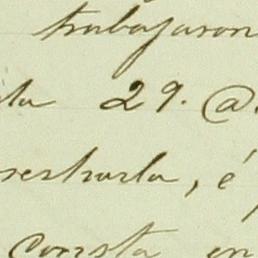 trabajaron
ta 29. @.
restarla, é
consta en